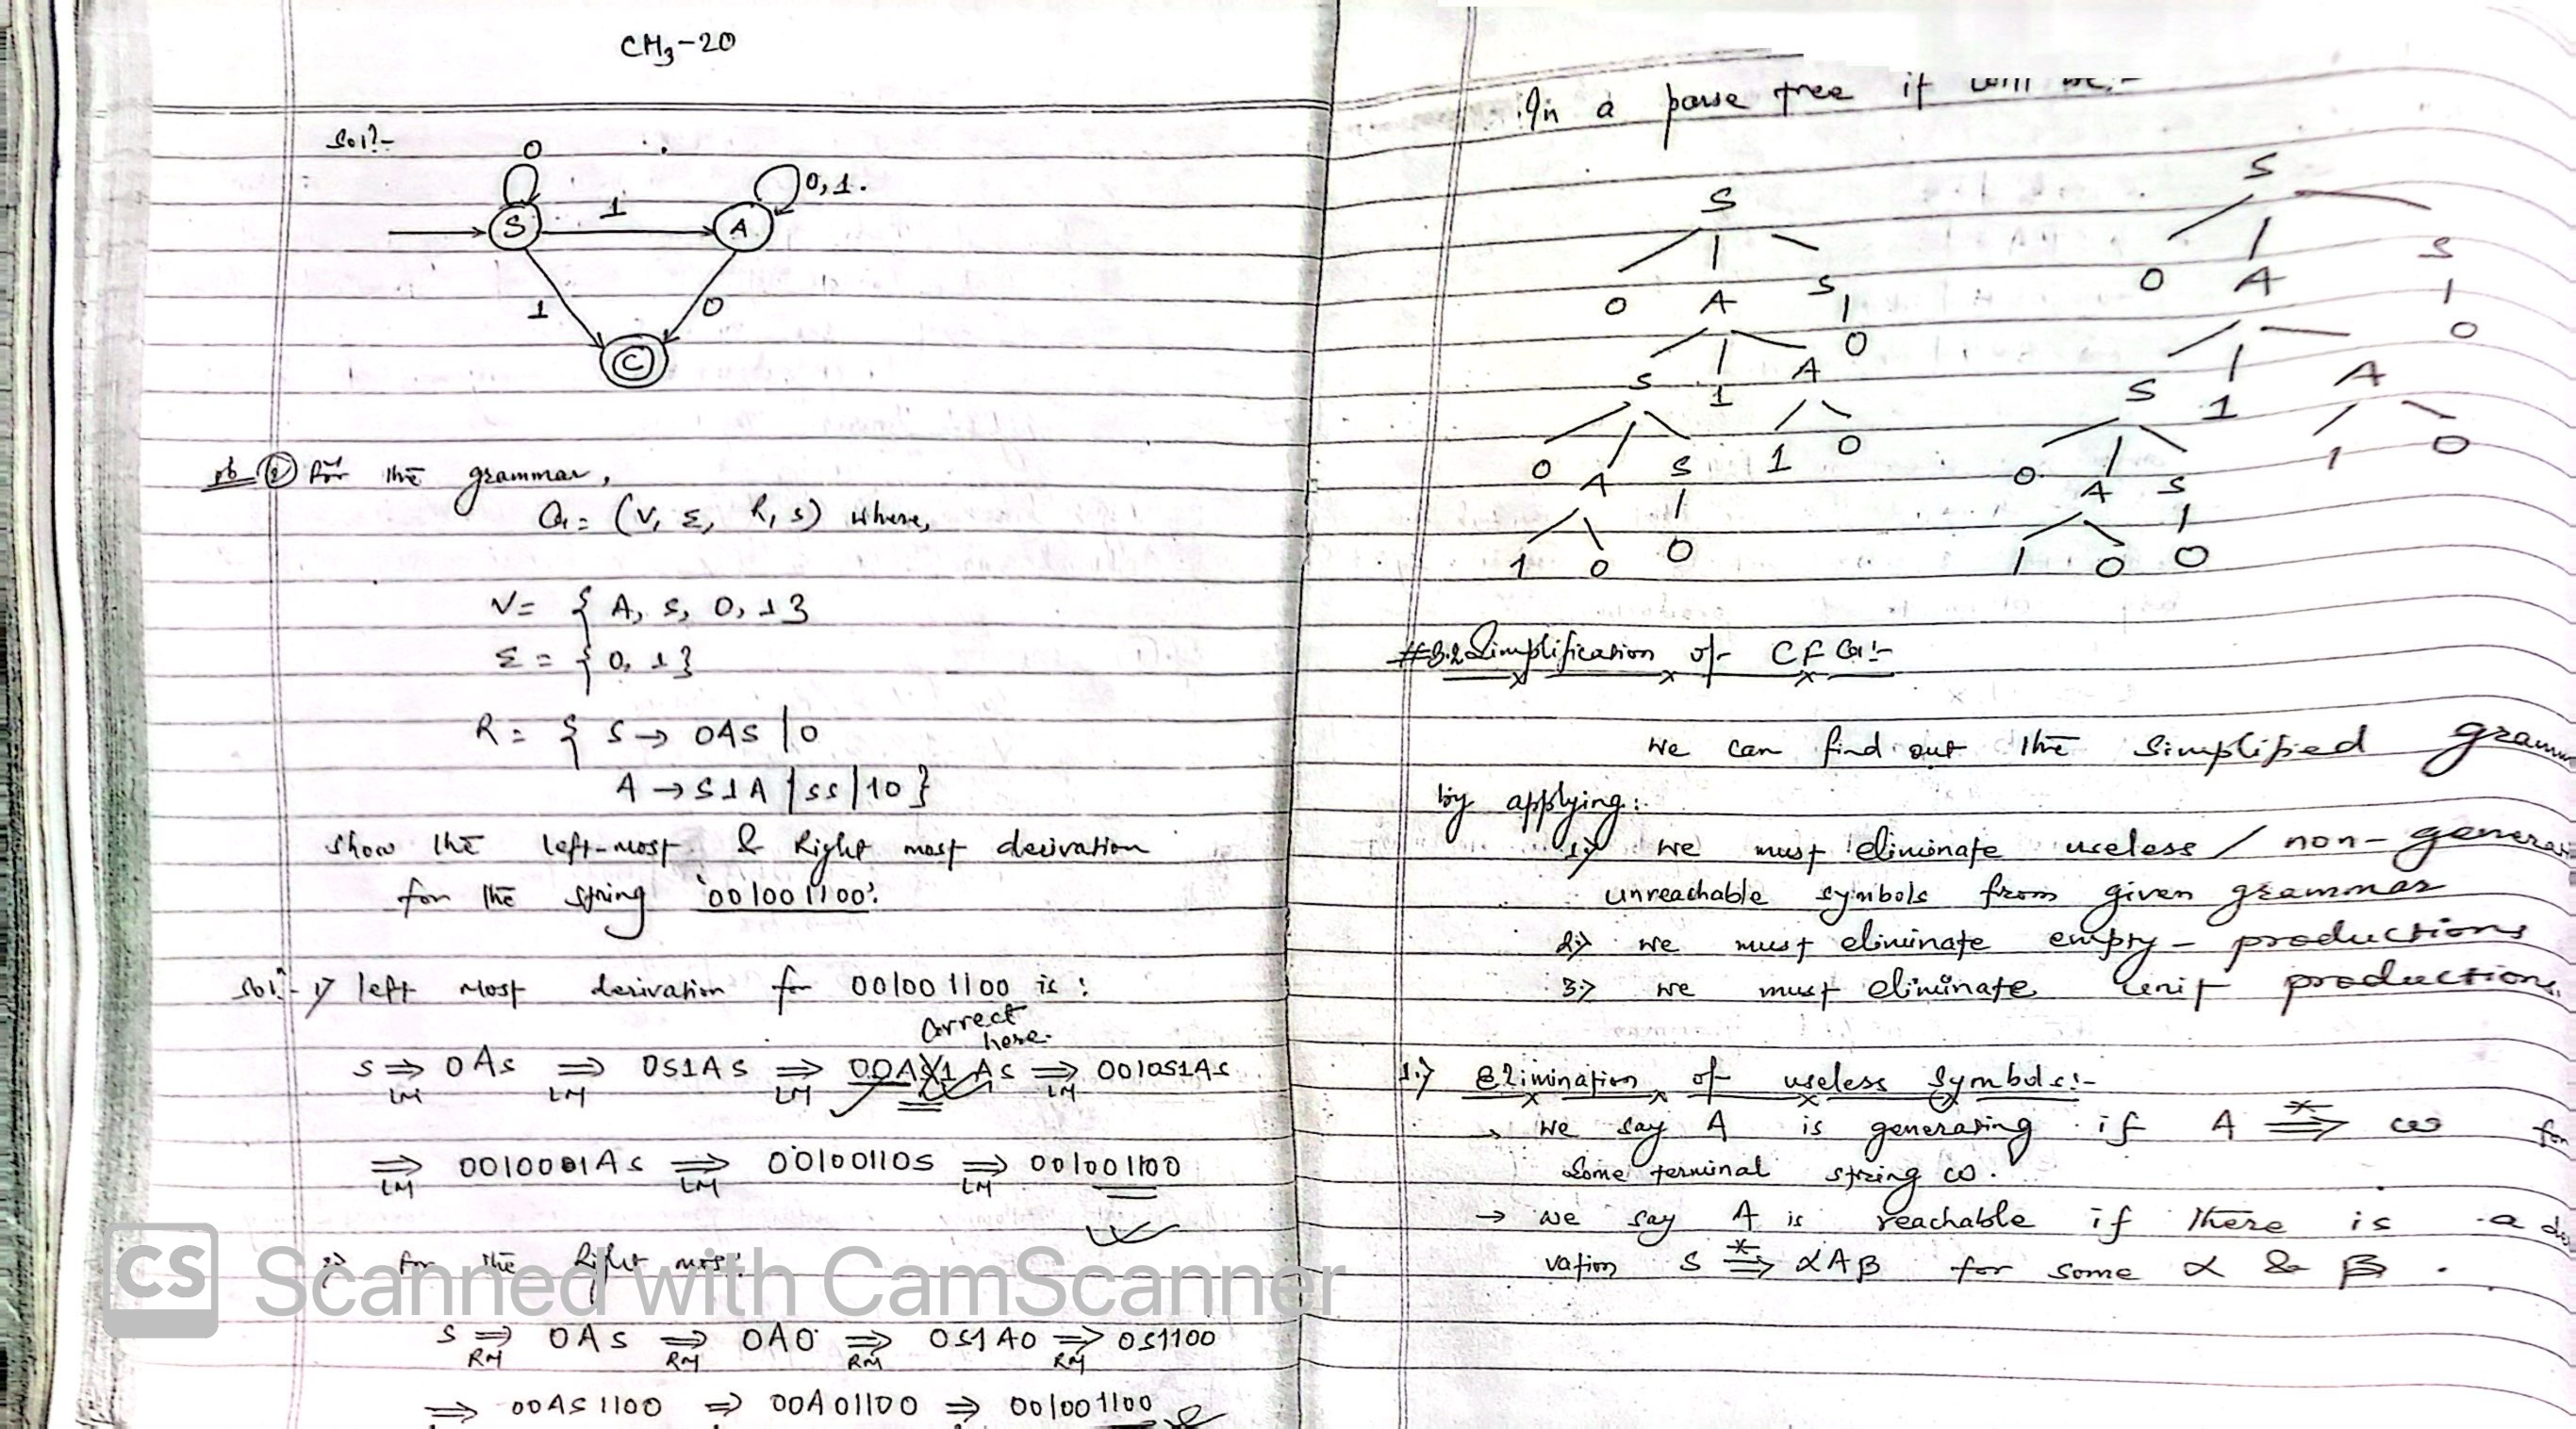 CH3-20
Sol:-
0
0,1.
S
1
A
1
0
C
② For the grammar,
G = (V, Σ, R, S) where,
V = { A, S, 0, 1}
Σ = { 0, 1}
R = { S → 0AS | 0
A → S1A | SS | 10 }
Show the left-most & Right most derivation
for the string '001001100'.
Sol:- 1) left most derivation for 001001100 is :
correct
here.
S ⇒ 0AS ⇒ 0S1AS ⇒ 00AS1AS ⇒ 0010S1AS
LM LM LM LM
⇒ 001001AS ⇒ 00100110S ⇒ 001001100
LM LM LM
2) for the Right most:
S ⇒ 0AS ⇒ 0A0 ⇒ 0S1A0 ⇒ 0S1100
RM RM RM RM
⇒ 00AS1100 ⇒ 00A01100 ⇒ 001001100
CS Scanned with CamScanner
In a parse tree it will be:-
S
0 A S
S 1 A 0
0 A S 1 0
1 0 0
S
0 A S
S 1 A 0
0 A S 1 0
1 0 0
#3.2 Simplification of CFG:-
We can find out the simplified
by applying:
1) we must eliminate useless / non-
unreachable symbols from given grammar
2) we must eliminate empty - productions
3) we must eliminate unit productions.
1.) Elimination of useless Symbols:-
→ we say A is generating if A *⇒ ω for
some terminal string ω.
→ we say A is reachable if there is a
vation S *⇒ αAβ for some α & β .